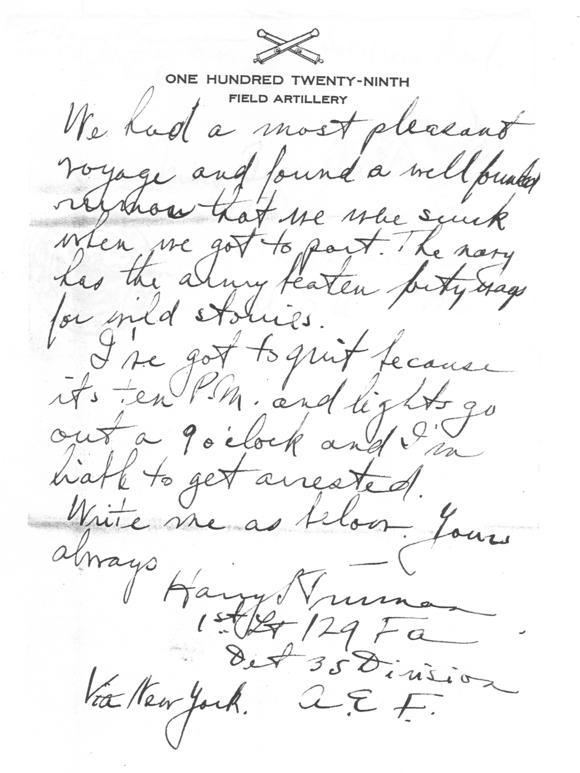 ONE HUNDRED TWENTY-NINTH
FIELD ARTILLERY
We had a most pleasant
voyage and found a well founded
rumor that we were sunk
when we got to port. The navy
has the army beaten forty ways
for wild stories.
I've got to quit because
its ten P.M. and lights go
out a 9 o'clock and I'm
liable to get arrested.
Write me as below. Yours
always
Harry S Truman
1st Lt 129 Fa
Det 35 Division
Via New York. A.E.F.